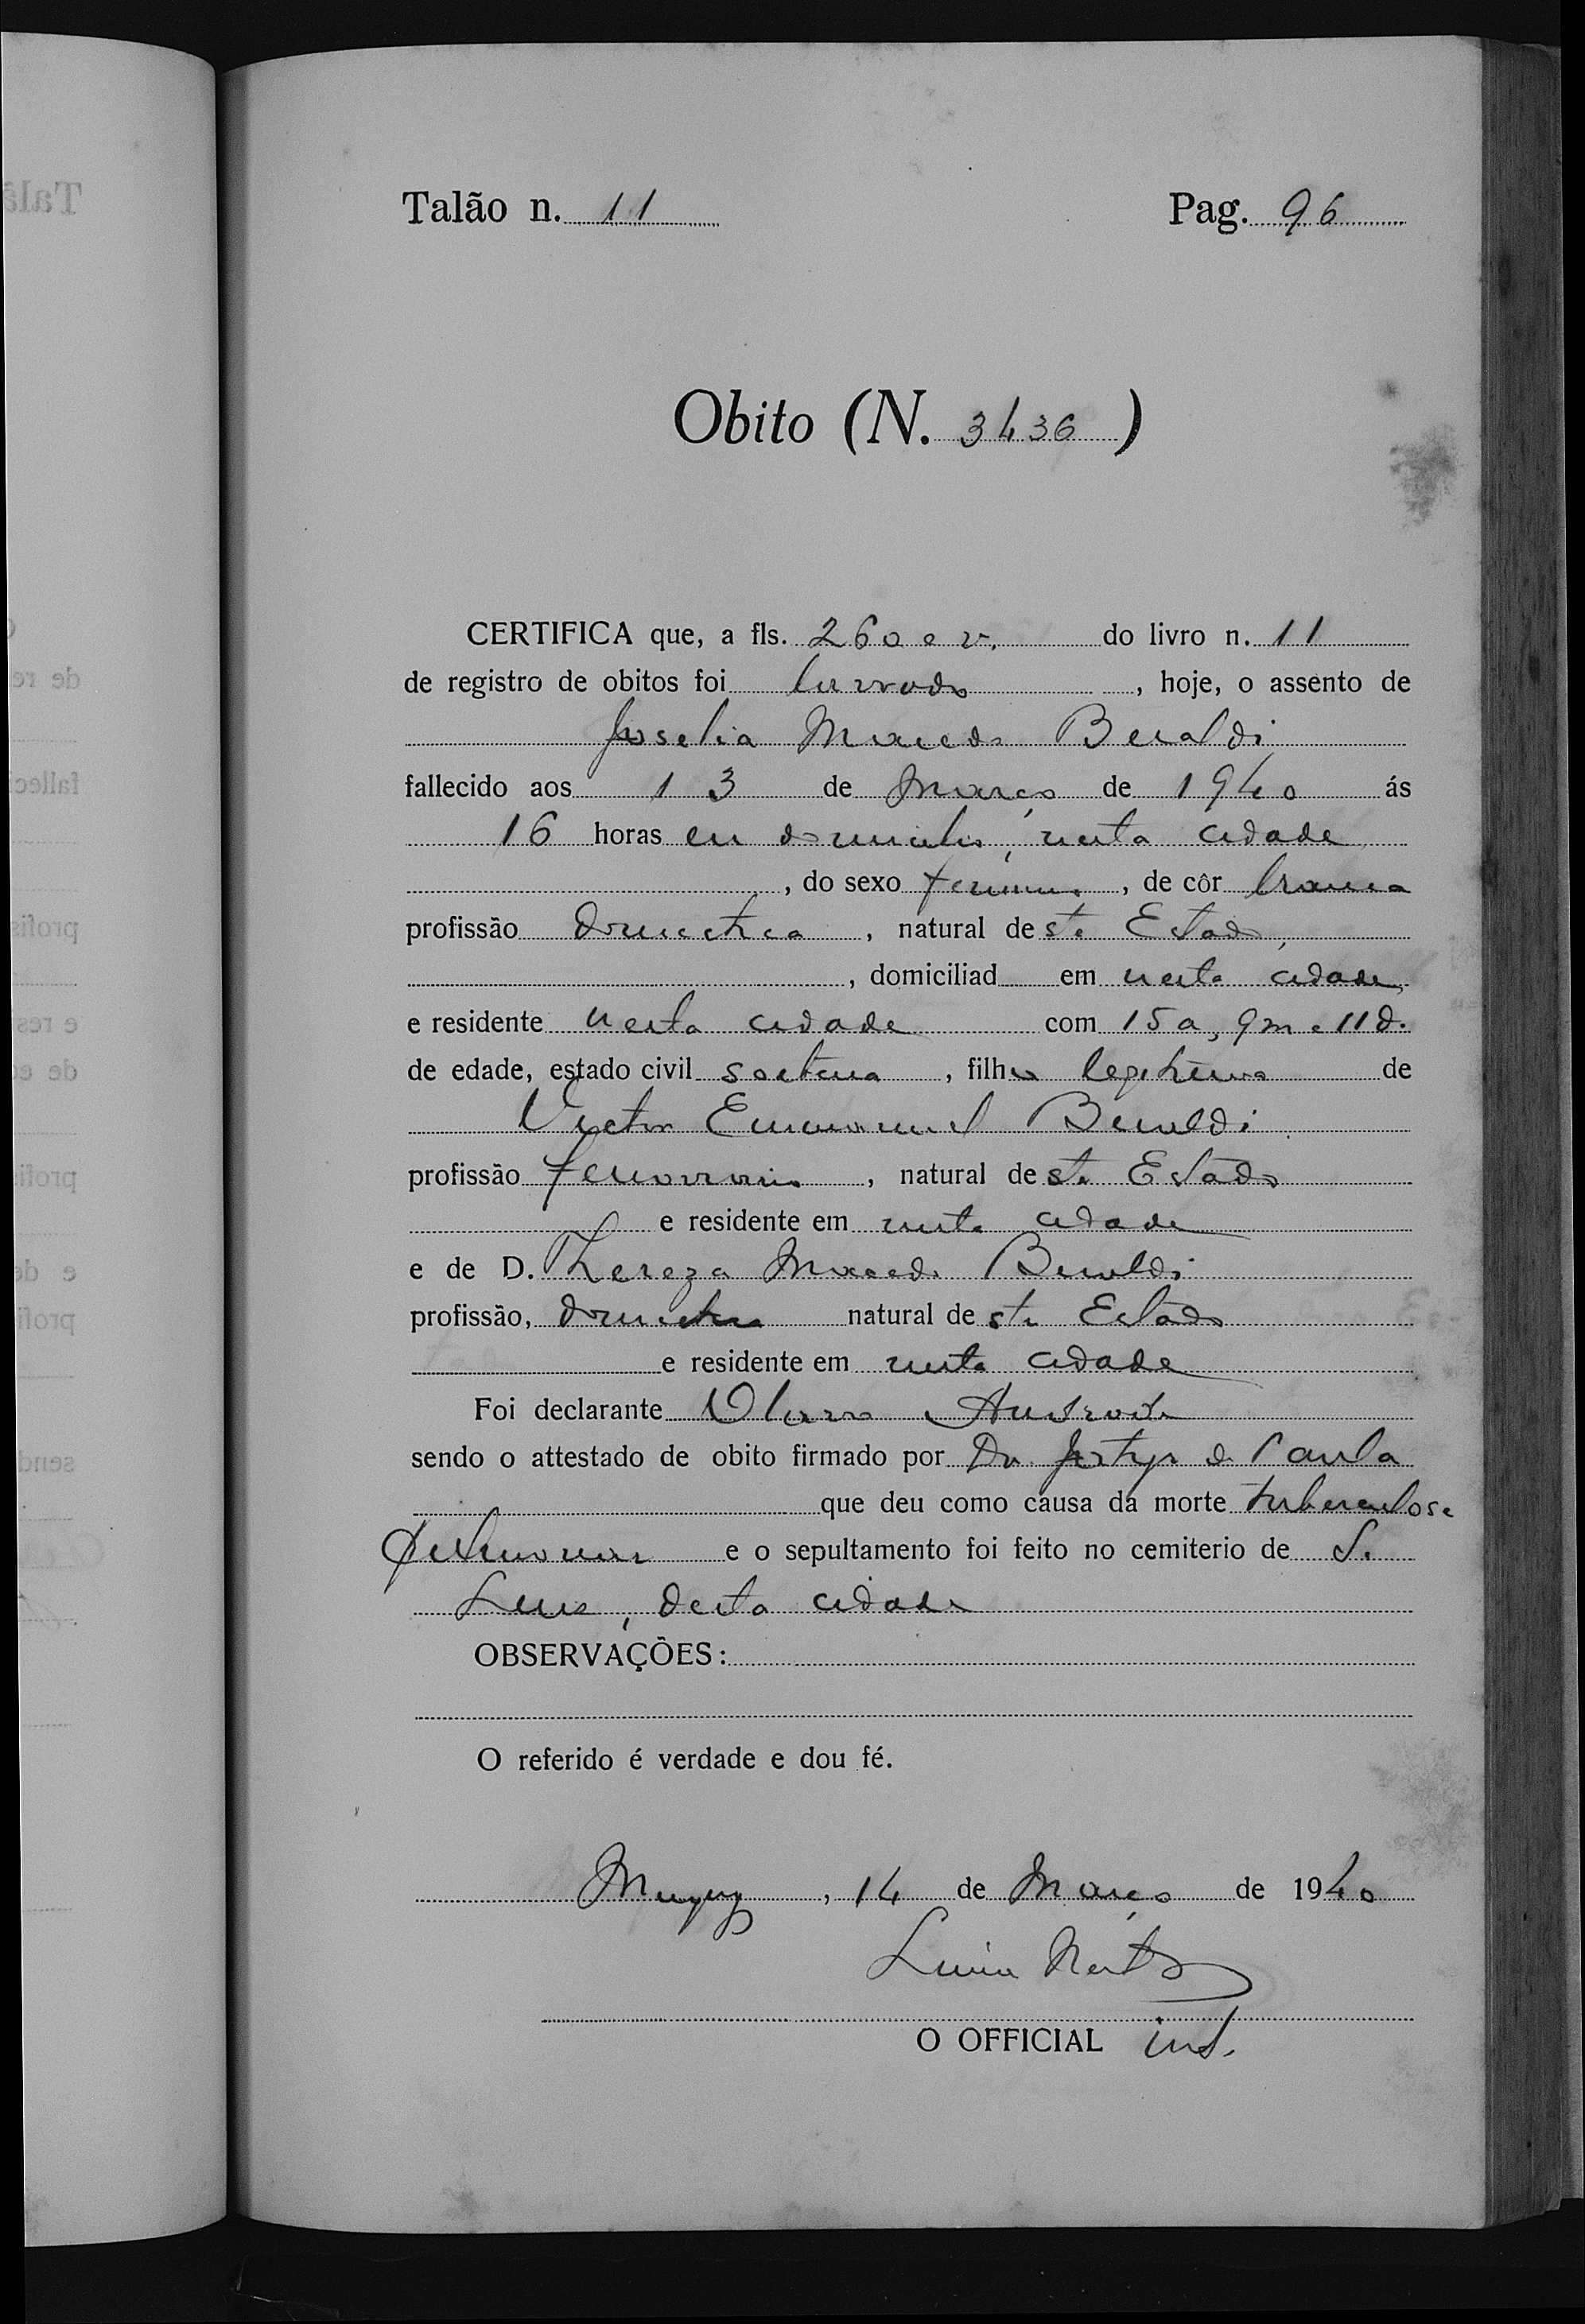 Talão n. 11 Pag. 96
Obito (N. 3436 )
CERTIFICA que, a fls. 260 e v. do livro n. 11
de registro de obitos foi lavrado , hoje, o assento de
Joselia Macedo Beraldi
fallecido aos 13 de Março de 1940 ás
16 horas em domicilio, nesta cidade
, do sexo feminino , de côr branca
profissão domestica , natural deste Estado,
, domiciliad em nesta cidade,
e residente nesta cidade com 15 a, 9 m e 11 d.
de edade, estado civil solteira , filha legitima de
Victor Emmanuel Beraldi
profissão ferroviario , natural deste Estado
e residente em nesta cidade
e de D. Thereza Macedo Beraldi
profissão, domestica natural deste Estado
e residente em nesta cidade
Foi declarante Olavo Andrade
sendo o attestado de obito firmado por Dr. de Paula
que deu como causa da morte tuberculose
pulmonar e o sepultamento foi feito no cemiterio de S.
Luis, desta cidade
OBSERVAÇÕES:
O referido é verdade e dou fé.
, 14 de Março de 1940
O OFFICIAL int.